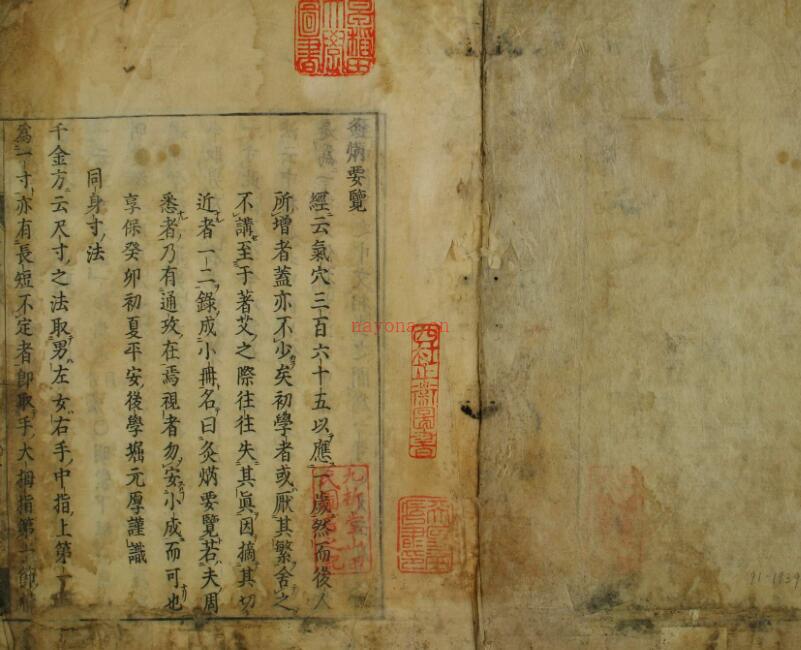 灸焫要覽
經云氣穴三百六十五以應一歲然而後人
所增者蓋亦不少矣初學者或厭其繁舍之
不講至于著艾之際往往失其眞因摘其切
近者一二錄成小冊名曰灸焫要覽若夫周
悉者乃有通攷在焉視者勿安小成而可也
享保癸卯初夏平安後學堀元厚謹識
同身寸法
千金方云尺寸之法取男左女右手中指上第一
爲一寸亦有長短不定者卽取手大拇指第一節
圖書
nayona.cn
91-1839